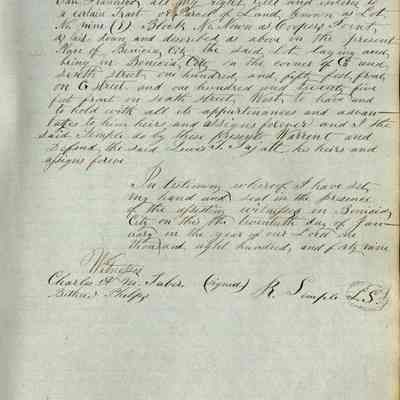 San Francisco all my right title and interest to
a certain Tract or Parcel of Land, known as Lot
No nine (9) Block, N. Down as Coopers Front,
as laid down and described as above on the present
Plan of Benicia City the said lot laying and
being in Benicia City on the corner of G and
seventh street, one hundred, and fifty feet, front,
on G street and one hundred and twenty five
feet front on seventh street, West, to have and
to hold with all its appurtenances and advan-
tages to him heirs and assigns forever and I the
said Semple do by these presents Warrent and
Defend, the said Lewis T. his heirs and
assigns forever
In testimony whereof I have set,
my hand and seal in the presence
of the witnesses in Benicia,
City on this the twentieth day of Jan-
uary in the year of our Lord one
thousand, eight hundred, and forty nine
Witnesses
Charles A. M. Taber (signed) R. Semple L.S.
Bethuel Phelps